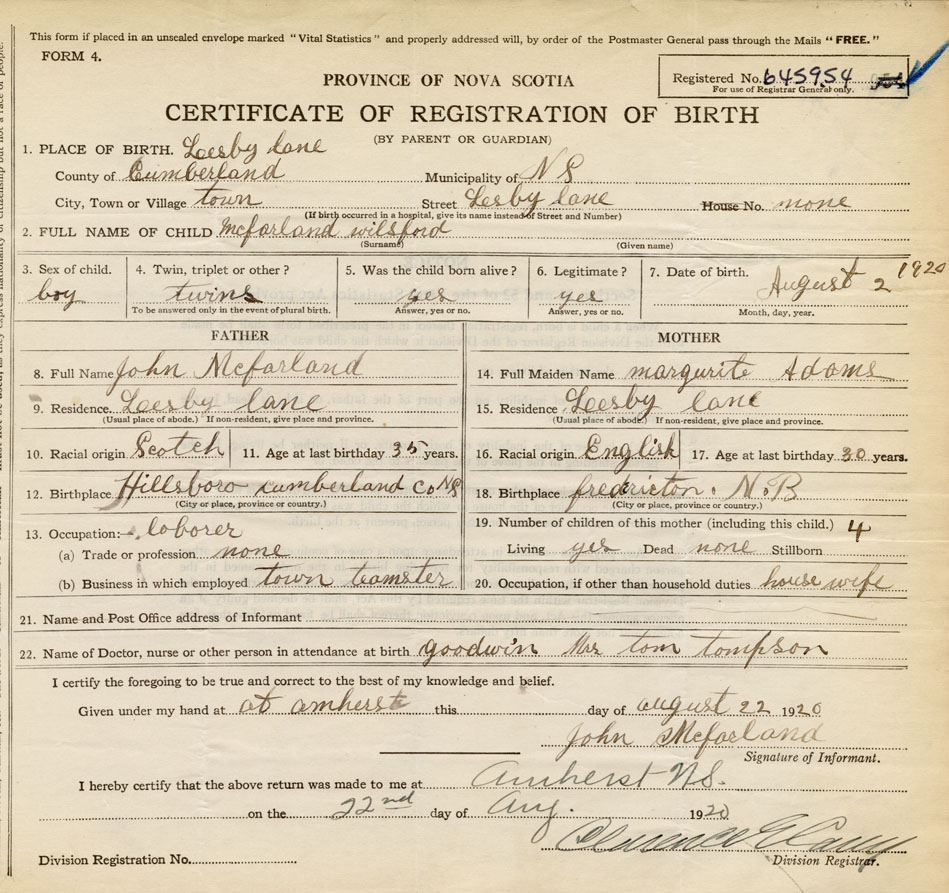 This form if placed in an unsealed envelope marked "Vital Statistics" and properly addressed will, by order of the Postmaster General pass through the Mails "FREE."
FORM 4.
Registered No. 645954
For use of Registrar General only.
PROVINCE OF NOVA SCOTIA
CERTIFICATE OF REGISTRATION OF BIRTH
(BY PARENT OR GUARDIAN)
1. PLACE OF BIRTH. Leesby lane
County of Cumberland Municipality of N S
City, Town or Village town Street Lesby lane House No. none
(If birth occurred in a hospital, give its name instead of Street and Number)
2. FULL NAME OF CHILD Mcfarland wilsford
(Surname) (Given name)
3. Sex of child. 4. Twin, triplet or other? 5. Was the child born alive? 6. Legitimate? 7. Date of birth.
boy twins yes yes August 2 1920
To be answered only in the event of plural birth. Answer, yes or no. Answer, yes or no. Month, day, year.
FATHER MOTHER
8. Full Name John Mcfarland 14. Full Maiden Name margurite Adams
9. Residence. Leesby lane 15. Residence Leesby lane
(Usual place of abode.) If non-resident, give place and province. (Usual place of abode.) If non-resident, give place and province.
10. Racial origin Scotch 11. Age at last birthday 35 years. 16. Racial origin English 17. Age at last birthday 30 years.
12. Birthplace Hillsboro cumberland Co NS 18. Birthplace fredricton. N.B
(City or place, province or country.) (City or place, province or country.)
13. Occupation:— loborer 19. Number of children of this mother (including this child.) 4
(a) Trade or profession none Living yes Dead none Stillborn
(b) Business in which employed town teamster 20. Occupation, if other than household duties. house wife
21. Name and Post Office address of Informant
22. Name of Doctor, nurse or other person in attendance at birth goodwin Mrs tom tompson
I certify the foregoing to be true and correct to the best of my knowledge and belief.
Given under my hand at at amherst this day of august 22 1920
John Mcfarland
Signature of Informant.
I hereby certify that the above return was made to me at Amherst N.S.
on the 22nd day of Aug. 1920
Division Registration No.
Division Registrar.